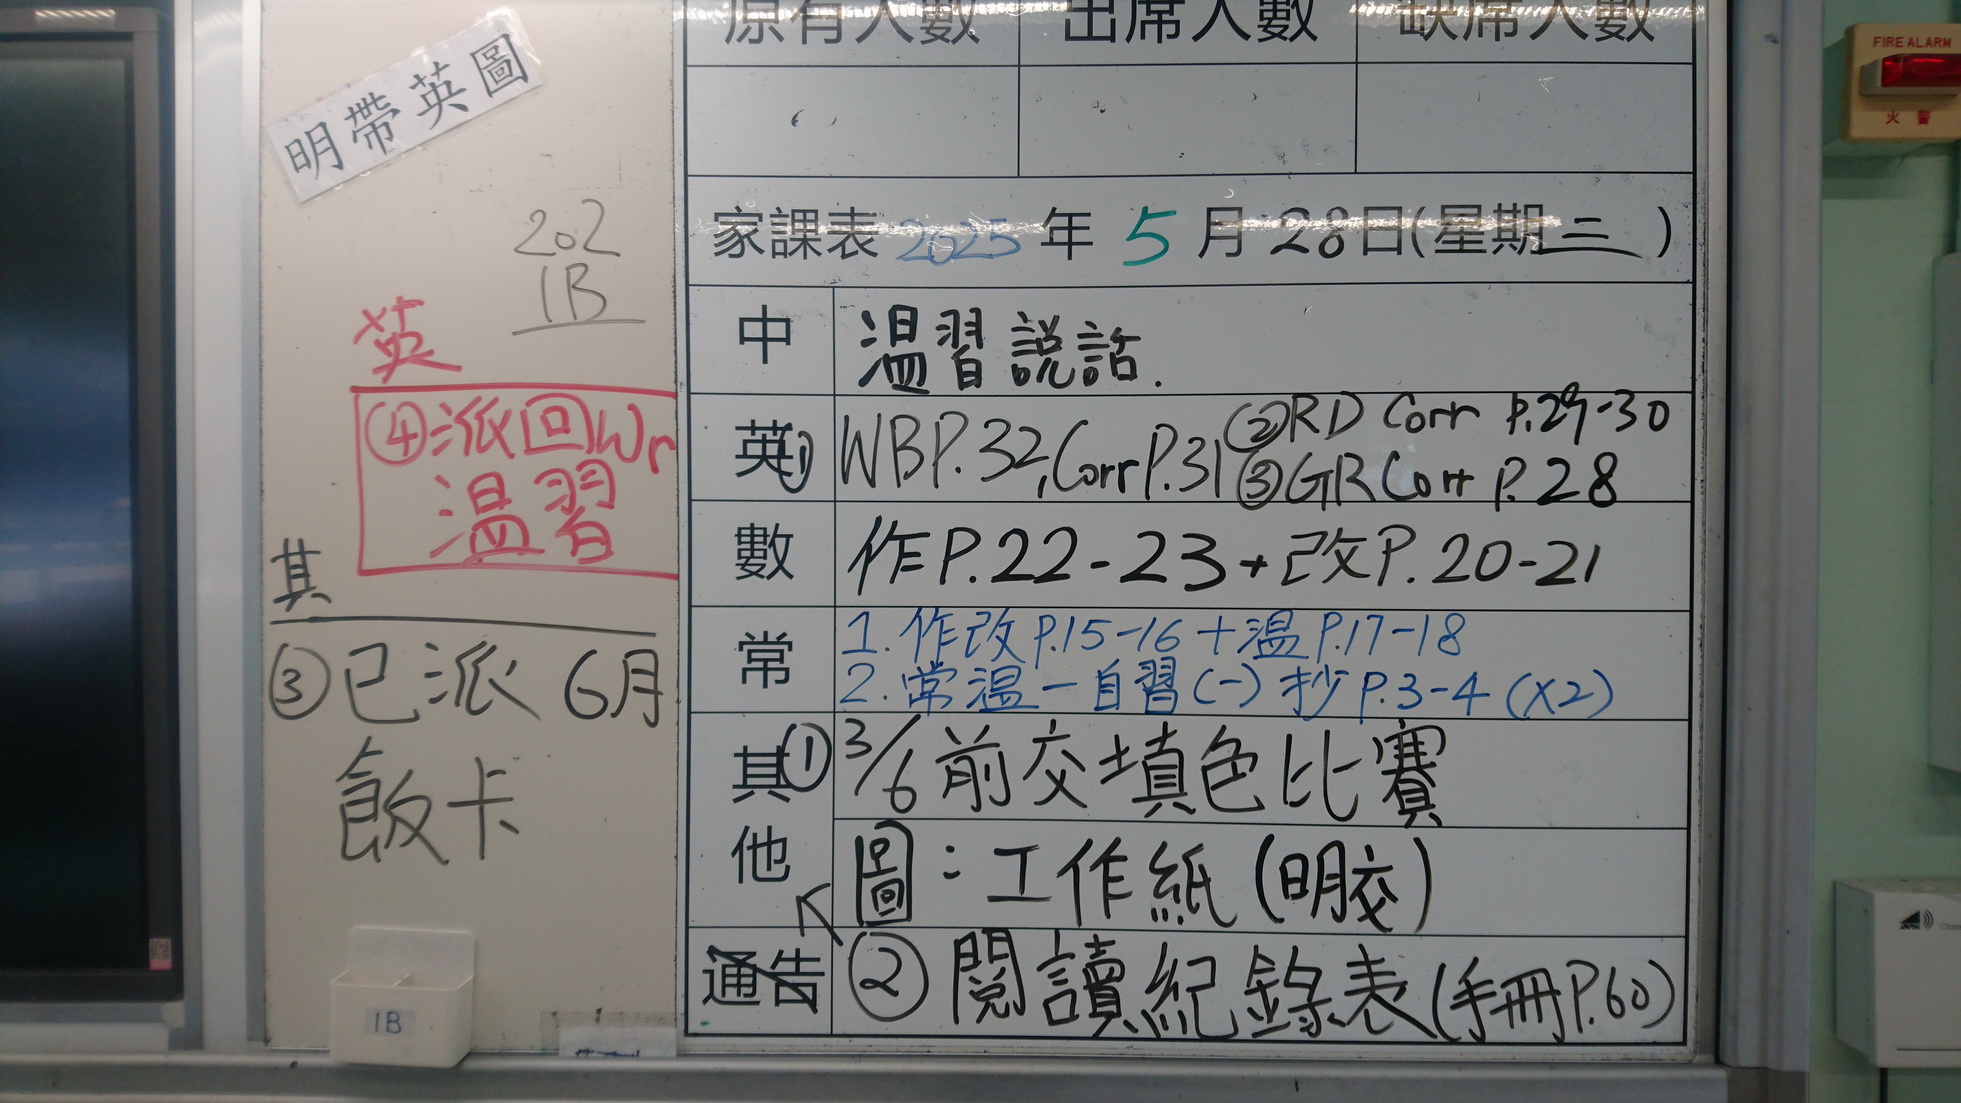 原有人數 出席人數 缺席人數
明帶英圖
202
1B
英
④派回Wr
温習
其
③已派 6月
飯卡
1B
家課表 2025 年 5 月 28日(星期三)
中 温習説話.
英① WBP.32, Corr P.31 ②RD Corr P.29-30
③GR Corr P.28
數 作P.22-23+改P.20-21
常 1. 作改P.15-16+温P.17-18
2. 常温一自習(一)抄P.3-4(x2)
其他 ① 3/6前交填色比賽
圖：工作紙(明交)
通告 ②閱讀紀錄表(手冊P.60)
FIRE ALARM
火警